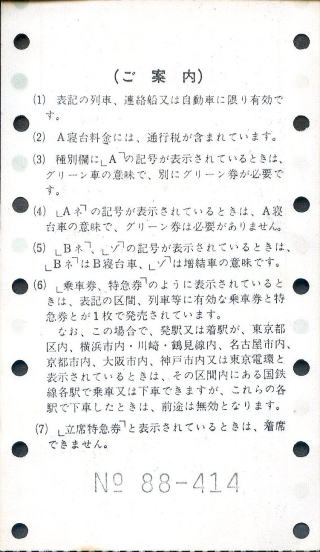 (ご案内)
(1) 表記の列車、連絡船又は自動車に限り有効で
す。
(2) A寝台料金には、通行税が含まれています。
(3) 種別欄に「A」の記号が表示されているときは、
グリーン車の意味で、別にグリーン券が必要で
す。
(4) 「Aネ」の記号が表示されているときは、A寝
台車の意味で、グリーン券は必要がありません。
(5) 「Bネ」、「ゾ」の記号が表示されているときは、
「Bネ」はB寝台車、「ゾ」は増結車の意味です。
(6) 「乗車券、特急券」のように表示されていると
きは、表記の区間、列車等に有効な乗車券と特
急券とが1枚で発売されています。
なお、この場合で、発駅又は着駅が、東京都
区内、横浜市内・川崎・鶴見線内、名古屋市内、
京都市内、大阪市内、神戸市内又は東京電環と
表示されているときは、その区間内にある国鉄
線各駅で乗車又は下車できますが、これらの各
駅で下車したときは、前途は無効となります。
(7) 「立席特急券」と表示されているときは、着席
できません。
No 88-414